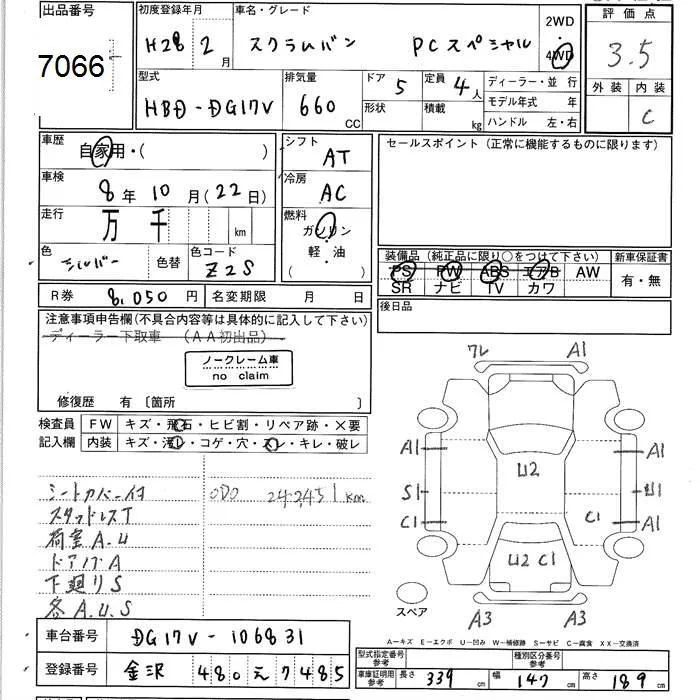 出品番号 初度登録年月 車名・グレード 2WD 評価点
7066 H28年 2月 スクラムバン PCスペシャル 4WD 3.5
型式 排気量 ドア 5 定員 4人 ディーラー・並行 外装 内装
HBD-DG17V 660 CC 形状 積載 kg モデル年式 年 C
ハンドル 左・右
車歴 自家用・( ) シフト AT セールスポイント（正常に機能するものに限ります）
車検 8年10月(22日) 冷房 AC
走行 万 千 km 燃料 ガソリン
色 シルバー 色替 色コード Z2S 軽・油 ( )
装備品（純正品に限り○をつけて下さい） 新車保証書
PS PW ABS エアB AW 有・無
SR ナビ TV カワ
R券 8,050円 名変期限 月 日 後日品
注意事項申告欄(不具合内容等は具体的に記入して下さい)
ディーラー下取車 (AA初出品)
ノークレーム車
no claim
修復歴 有〔箇所 〕
検査員 FW キズ・飛石・ヒビ割・リペア跡・×要
記入欄 内装 キズ・汚レ・コゲ・穴・スレ・キレ・破レ
シートカバー付 ODO 242,451km
スタッドレスT
荷室A.U
ドアノブA
下廻りS
各A.U.S
ワレ A1
A1 U2 A1
S1 U1
C1 C1 A1
U2 C1
スペア A3 A3
A－キズ E－エクボ U－凹み W－補修跡 S－サビ C－腐食 XX－交換済
車台番号 DG17V-106831
登録番号 金沢 480 え 7485
型式指定番号 参考 種別区分番号 参考
車庫証明用 参考 長さ 339cm 幅 147cm 高さ 189cm